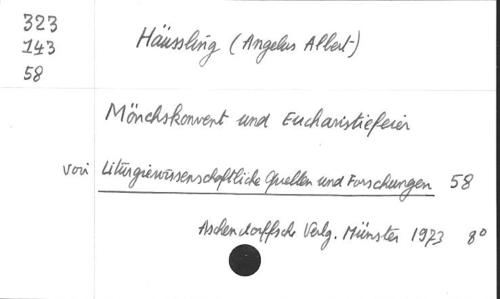 323
143
58
Häussling (Angelus Albert)
Mönchskonvent und Eucharistiefeier
voir Liturgiewissenschaftliche Quellen und Forschungen 58
Aschendorffsche Verlg. Münster 1973 8°